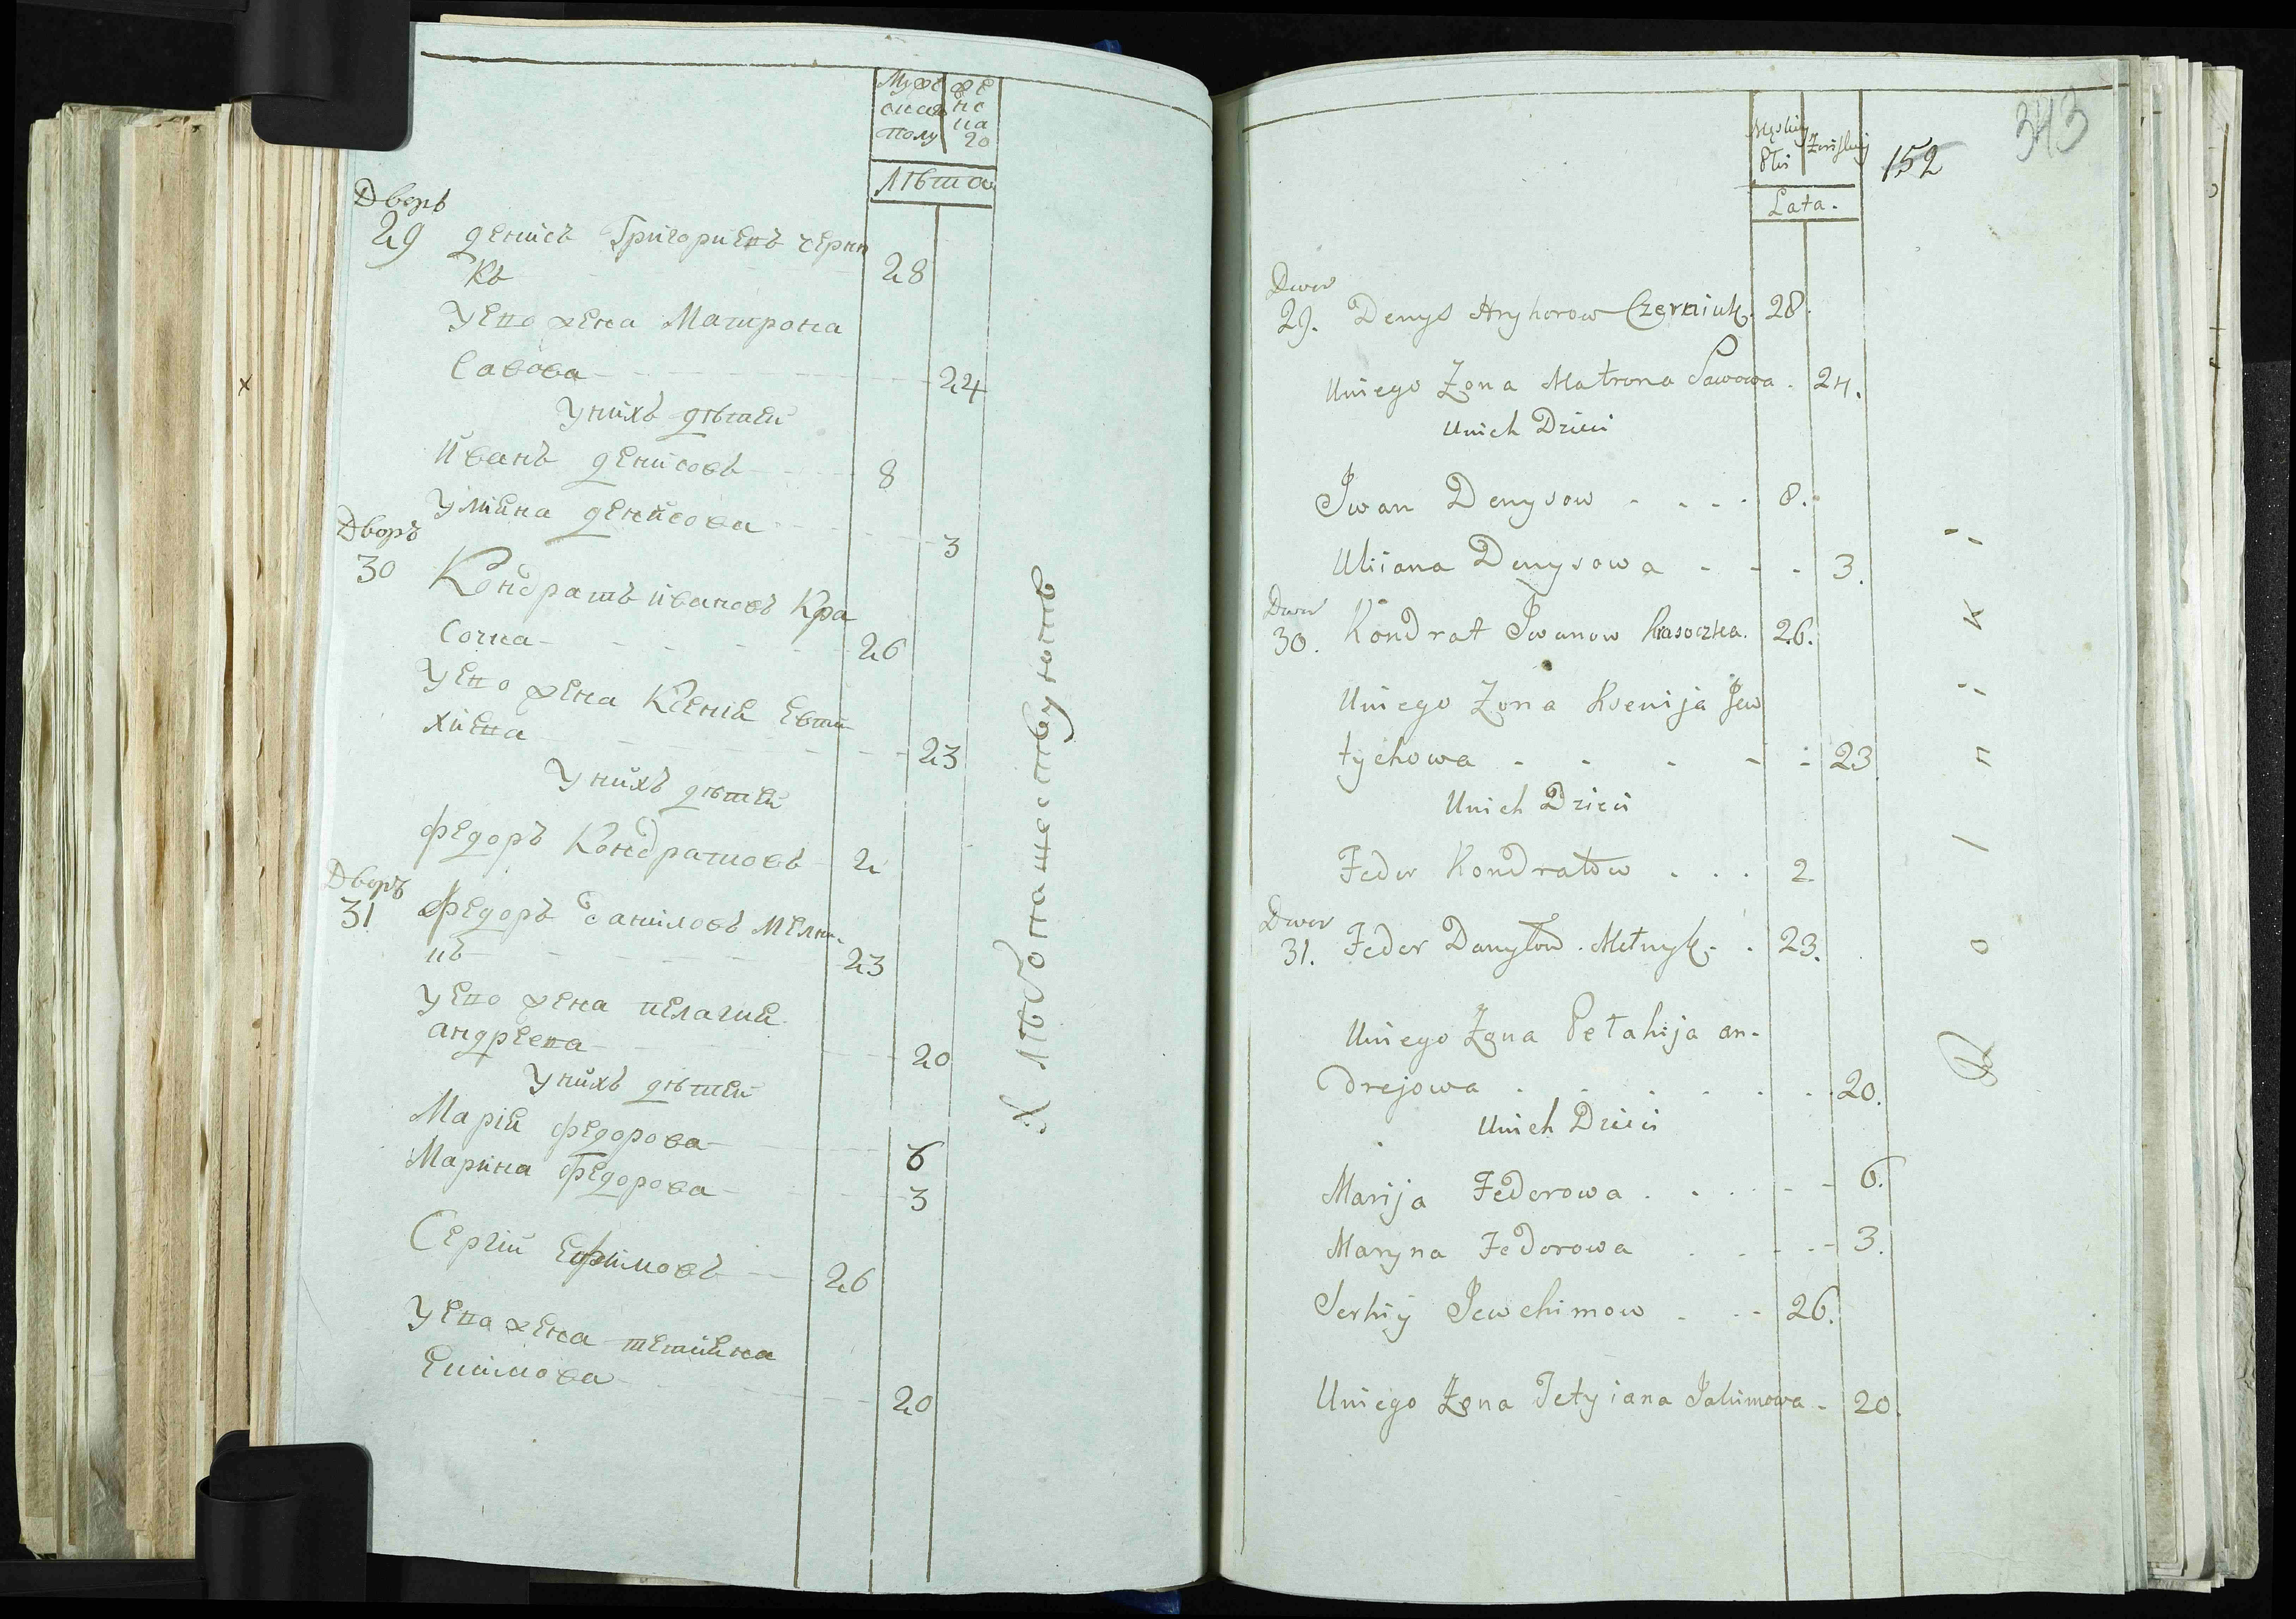 Мужеска полу
женскаго
Лѣта
Дворъ
29 Денисъ Григориевъ Черню
къ 28
У его жена Матрона
Савова 24
У нихъ дѣтей
Иванъ Денисовъ 8
Улияна Денисова 3
Дворъ
30 Кондратъ Ивановъ Кра
сочка 26
У его жена Ксения Евти
хиева 23
У нихъ дѣтей
Федоръ Кондратовъ 2
Дворъ
31 Федоръ Даниловъ Мелни
къ 23
У его жена Пелагия
Андреева 20
У нихъ дѣтей
Мария Федорова 6
Марина Федорова 3
Сергий Ефимовъ 26
У его жена Тетияна
Екимова 20
Хлѣбопашествуютъ
343
152
Męskiey Płci
Żeńskiey
Lata.
Dwor
29. Denys Hryhorow Czerniuk. 28.
U niego Żona Matrona Sawowa. 24.
U nich Dzieci
Iwan Denysow 8.
Uliiana Denysowa 3.
Dwor
30. Kondrat Iwanow Krasoczka. 26.
U niego Żona Ksenija Jew
tychowa 23
U nich Dzieci
Feder Kondratow 2
Dwor
31. Feder Danyłow. Mełnyk. 23.
U niego Żona Pełahija an-
drejowa 20.
U nich Dzieci
Marija Federowa 6.
Maryna Federowa 3.
Serhiy Jewchimow 26.
U niego Żona Tetyiana Jakimowa 20.
Rolniki